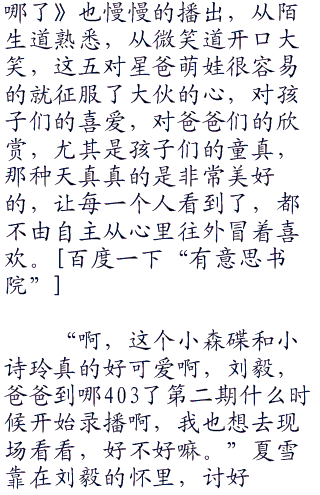 哪了》也慢慢的播出，从陌
生道熟悉，从微笑道开口大
笑，这五对星爸萌娃很容易
的就征服了大伙的心，对孩
子们的喜爱，对爸爸们的欣
赏，尤其是孩子们的童真，
那种天真真的是非常美好
的，让每一个人看到了，都
不由自主从心里往外冒着喜
欢。[百度一下“有意思书
院”]
“啊，这个小森碟和小
诗玲真的好可爱啊，刘毅，
爸爸到哪403了第二期什么时
候开始录播啊，我也想去现
场看看，好不好嘛。”夏雪
靠在刘毅的怀里，讨好